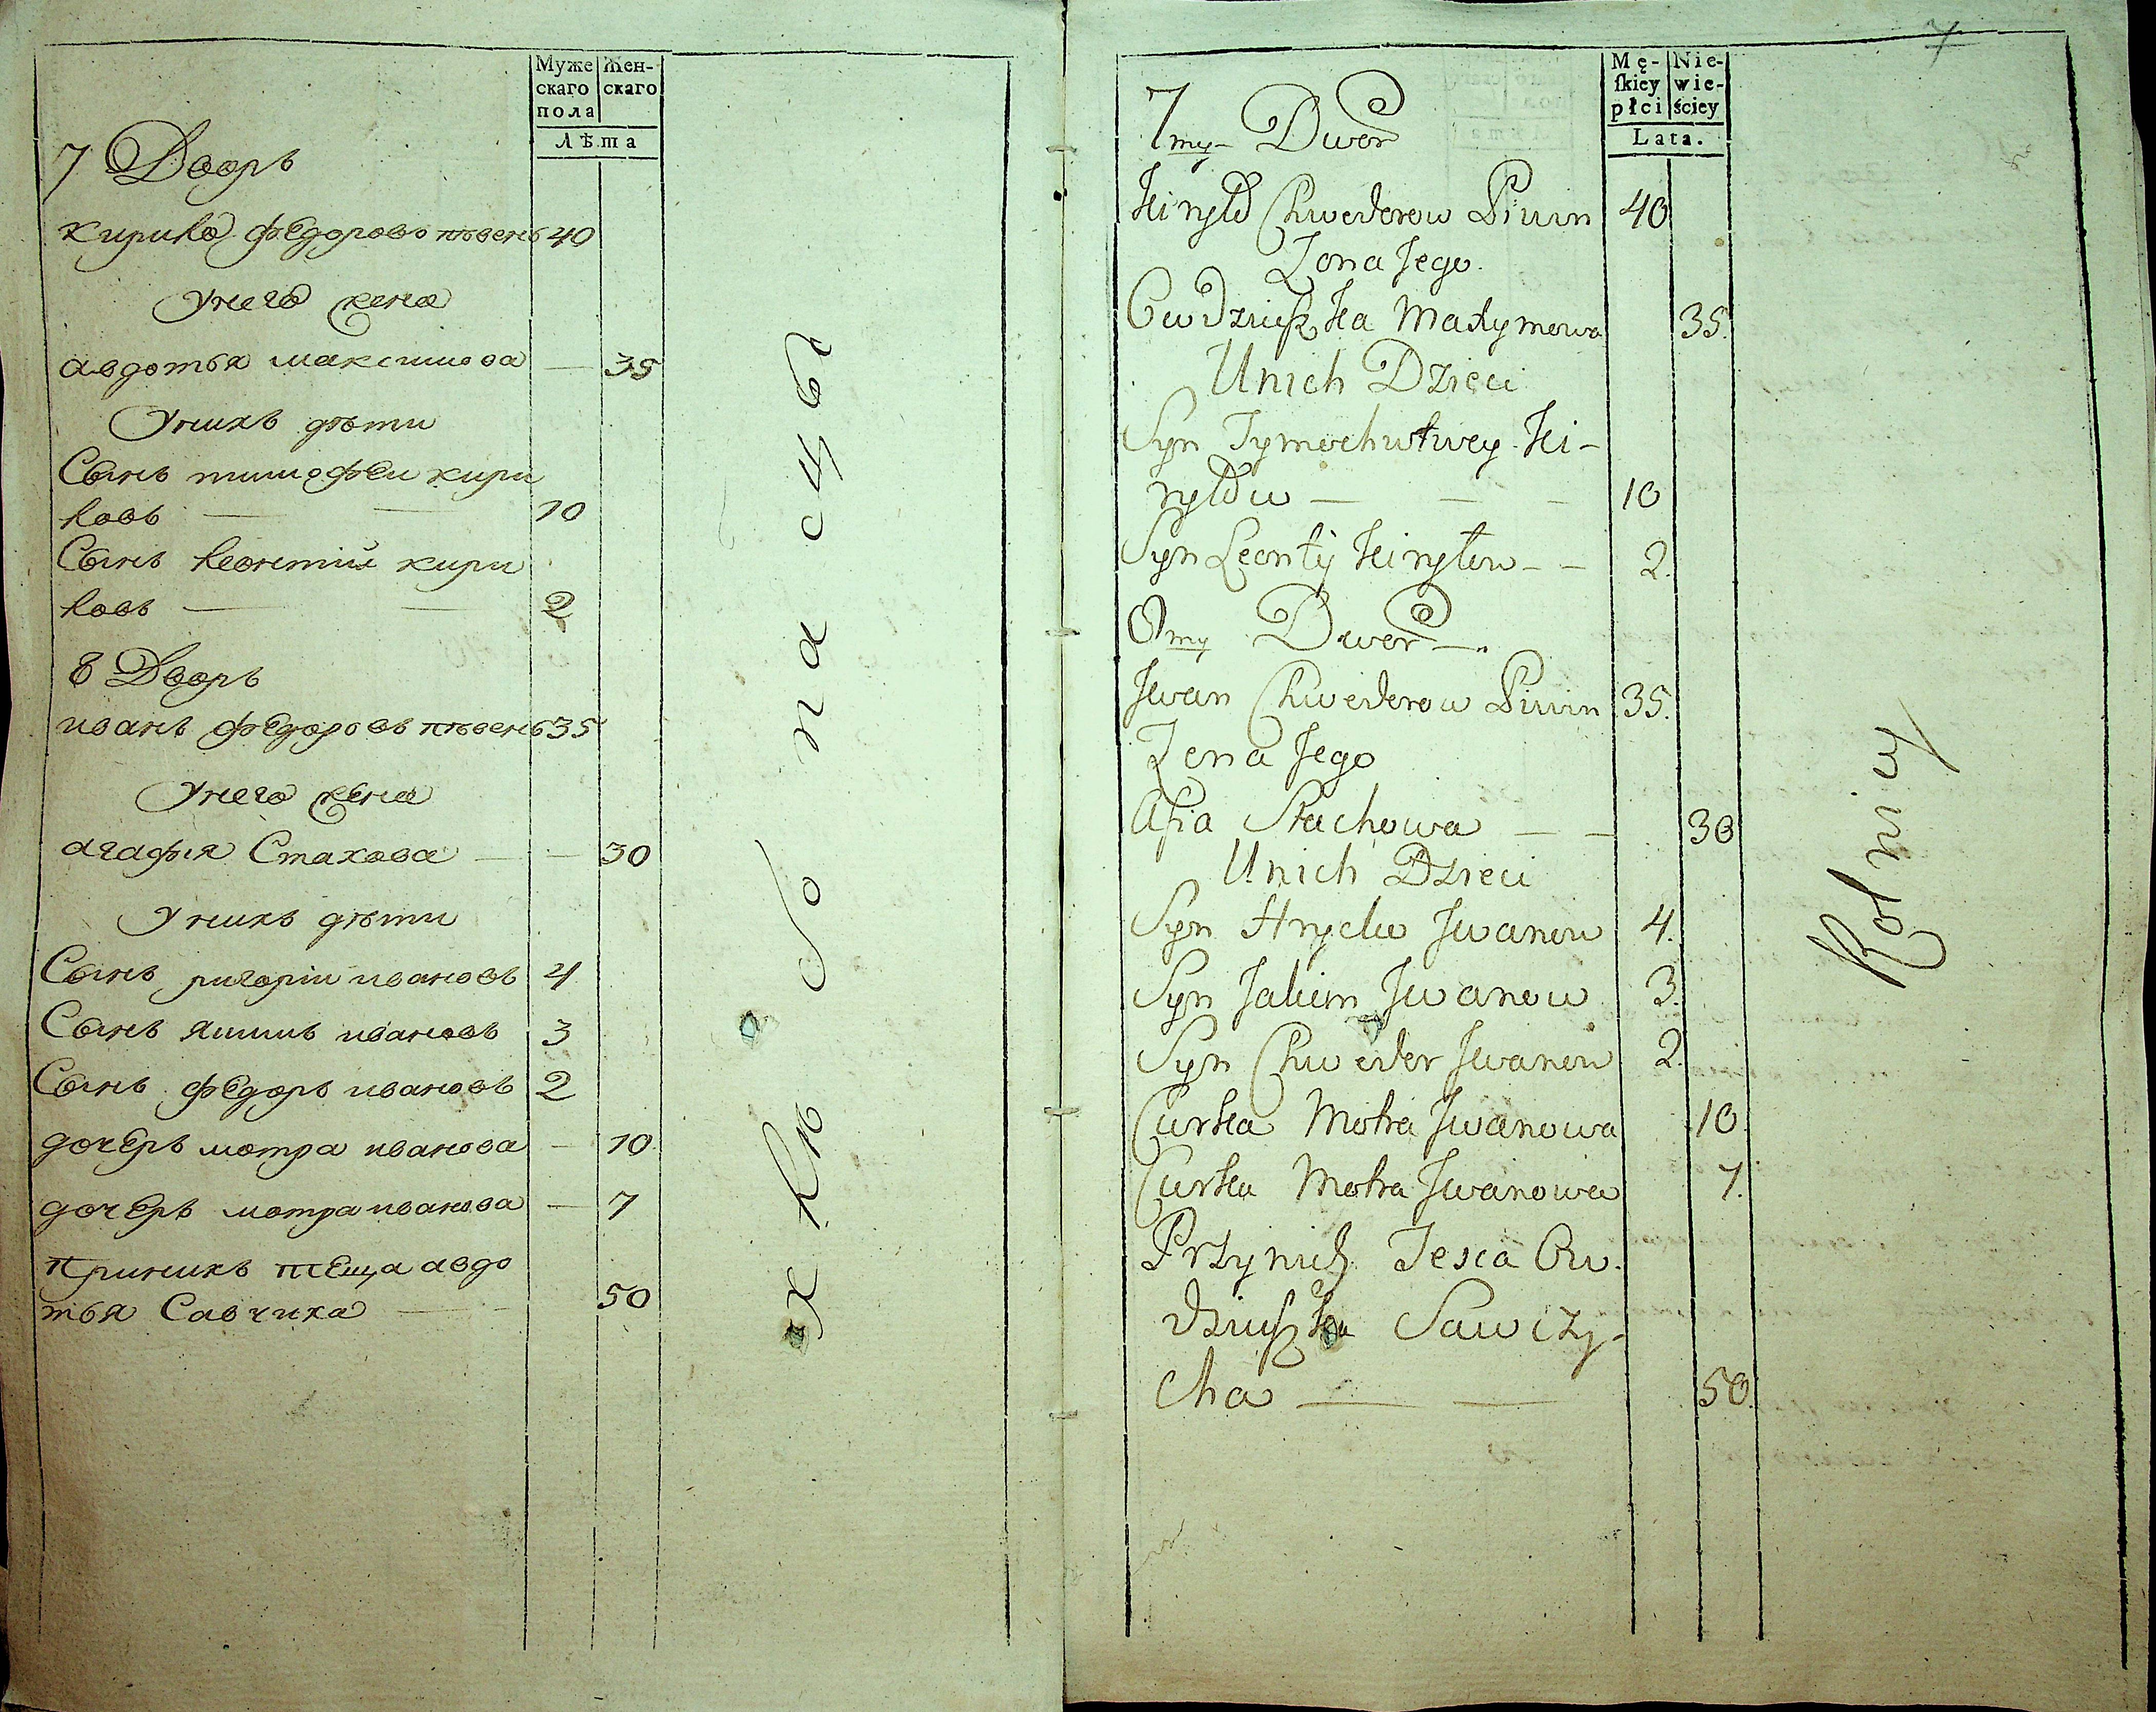 Муже
скаго
пола
Жен-
скаго
Лѣта
7 Дворъ
кирило федорово пѣвень 40
Унего жена
авдотья максимова — 35
Унихъ дѣти
Сынъ тимофеи кири
ловъ — — 10
Сынъ леонтии кири
ловъ — — 2
8 Дворъ
иванъ федоровъ пѣвень 35
Унего жена
агафия Стахова — — 30
Унихъ дѣти
Сынъ григории ивановъ 4
Сынъ якимъ ивановъ 3
Сынъ федоръ ивановъ 2
дочеръ мотра иванова — 10
дочеръ мотра иванова — 7
Принихъ теща авдо
тья Савчиха — 50
хлюбопасцы
7
Mę-
ſkiey
płci
Nie-
wie-
ściey
Lata.
7my Dwor
Kiryło Chwederow Piwin 40
Zona Jego.
Owdziuszka Maxymowa 35.
Unich Dzieci
Syn Tymochwiwey Ki-
ryłow — — — 10
Syn Leonty Kiryłow — — 2.
8my Dwor —.
Jwan Chwederow Piwin 35.
Zona Jego
Apia Stachowa — — 30
Unich Dzieci
Syn Hryćko Jwanow 4.
Syn Jakim Jwanow 3.
Syn Chweder Jwanow 2.
Curka Motra Jwanowa 10.
Curka Motra Jwanowa 7.
Przynich Tesca Ow.
dziuszka Sawczy-
cha — — 50.
Rolnicy